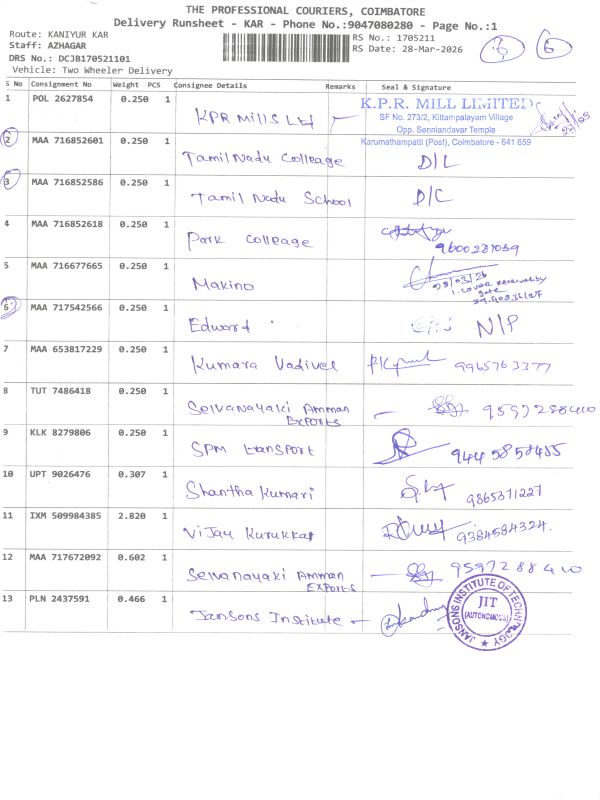 THE PROFESSIONAL COURIERS, COIMBATORE
Delivery Runsheet - KAR - Phone No.:9047080280 - Page No.:1
Route: KANIYUR KAR
RS No.: 1705211
Staff: AZHAGAR
RS Date: 28-Mar-2026
DRS No.: DCJB170521101
Vehicle: Two Wheeler Delivery
3 6
S No Consignment No Weight PCS Consignee Details Remarks Seal & Signature
1 POL 2627854 0.250 1 KPR Mills Ltd
K.P.R. MILL LIMITED
SF No. 273/2, Kittampalayam Village
Opp. Senniandavar Temple
Karumathampatti (Post), Coimbatore - 641 659
2 MAA 716852601 0.250 1 Tamil Nadu Colleage D/L
3 MAA 716852586 0.250 1 Tamil Nadu School D/C
4 MAA 716852618 0.250 1 Park Colleage 9600287039
5 MAA 716677665 0.250 1 Makino
28/03/26
1. cover received by
gate
6 MAA 717542566 0.250 1 Edword N/P
7 MAA 653817229 0.250 1 Kumara Vadivel 9965763377
8 TUT 7486418 0.250 1 Selvanayaki Amman
Exports 9597288410
9 KLK 8279806 0.250 1 SPM transport 9445858485
10 UPT 9026476 0.307 1 Shantha Kumari 9865371227
11 IXM 509984385 2.820 1 Vijay Kurukkat 9384584324.
12 MAA 717672092 0.602 1 Selvanayaki Amman
Exports 9597288410
13 PLN 2437591 0.466 1 Jansons Institute
JANSONS INSTITUTE OF TECHNOLOGY
JIT
(AUTONOMOUS)